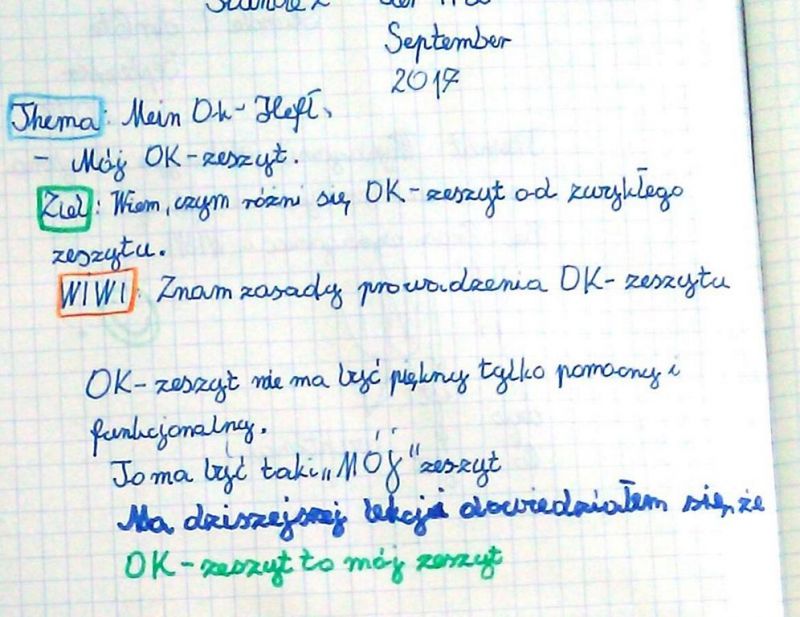 September
2017
Thema: Mein Ok-Heft.
- Mój OK-zeszyt.
Ziel: Wiem, czym różni się OK-zeszyt od zwykłego
zeszytu.
WIWI: Znam zasady prowadzenia OK-zeszytu
OK-zeszyt nie ma być piękny tylko pomocny i
funkcjonalny.
To ma być taki „MÓJ" zeszyt
Na dzisiejszej lekcji dowiedziałem się, że
OK-zeszyt to mój zeszyt